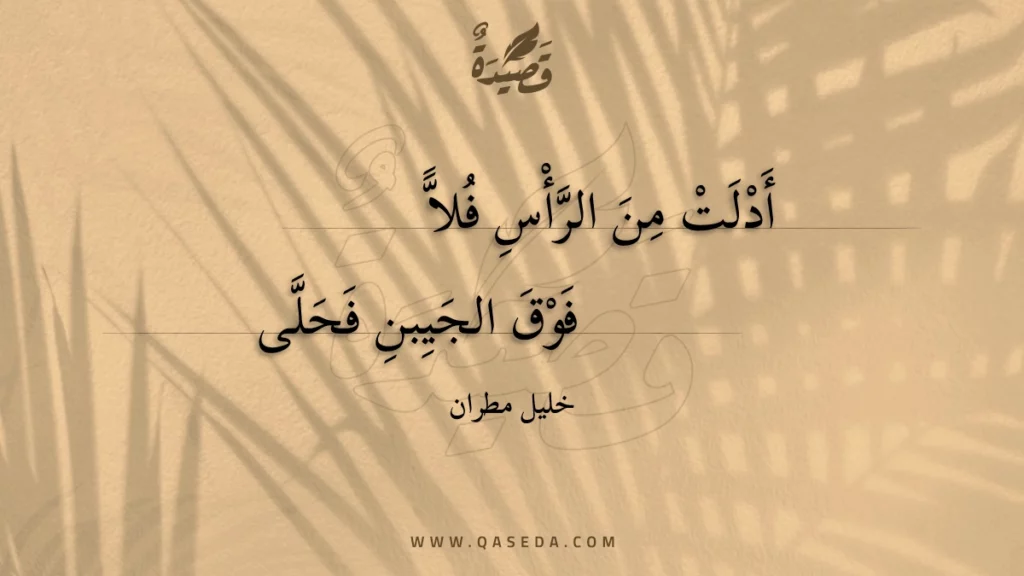 قَصِيدَةٌ
أَدْلَتْ مِنَ الرَّأْسِ فُلاًّ
فَوْقَ الجَيِبنِ فَحَلَّى
خليل مطران
WWW.QASEDA.COM